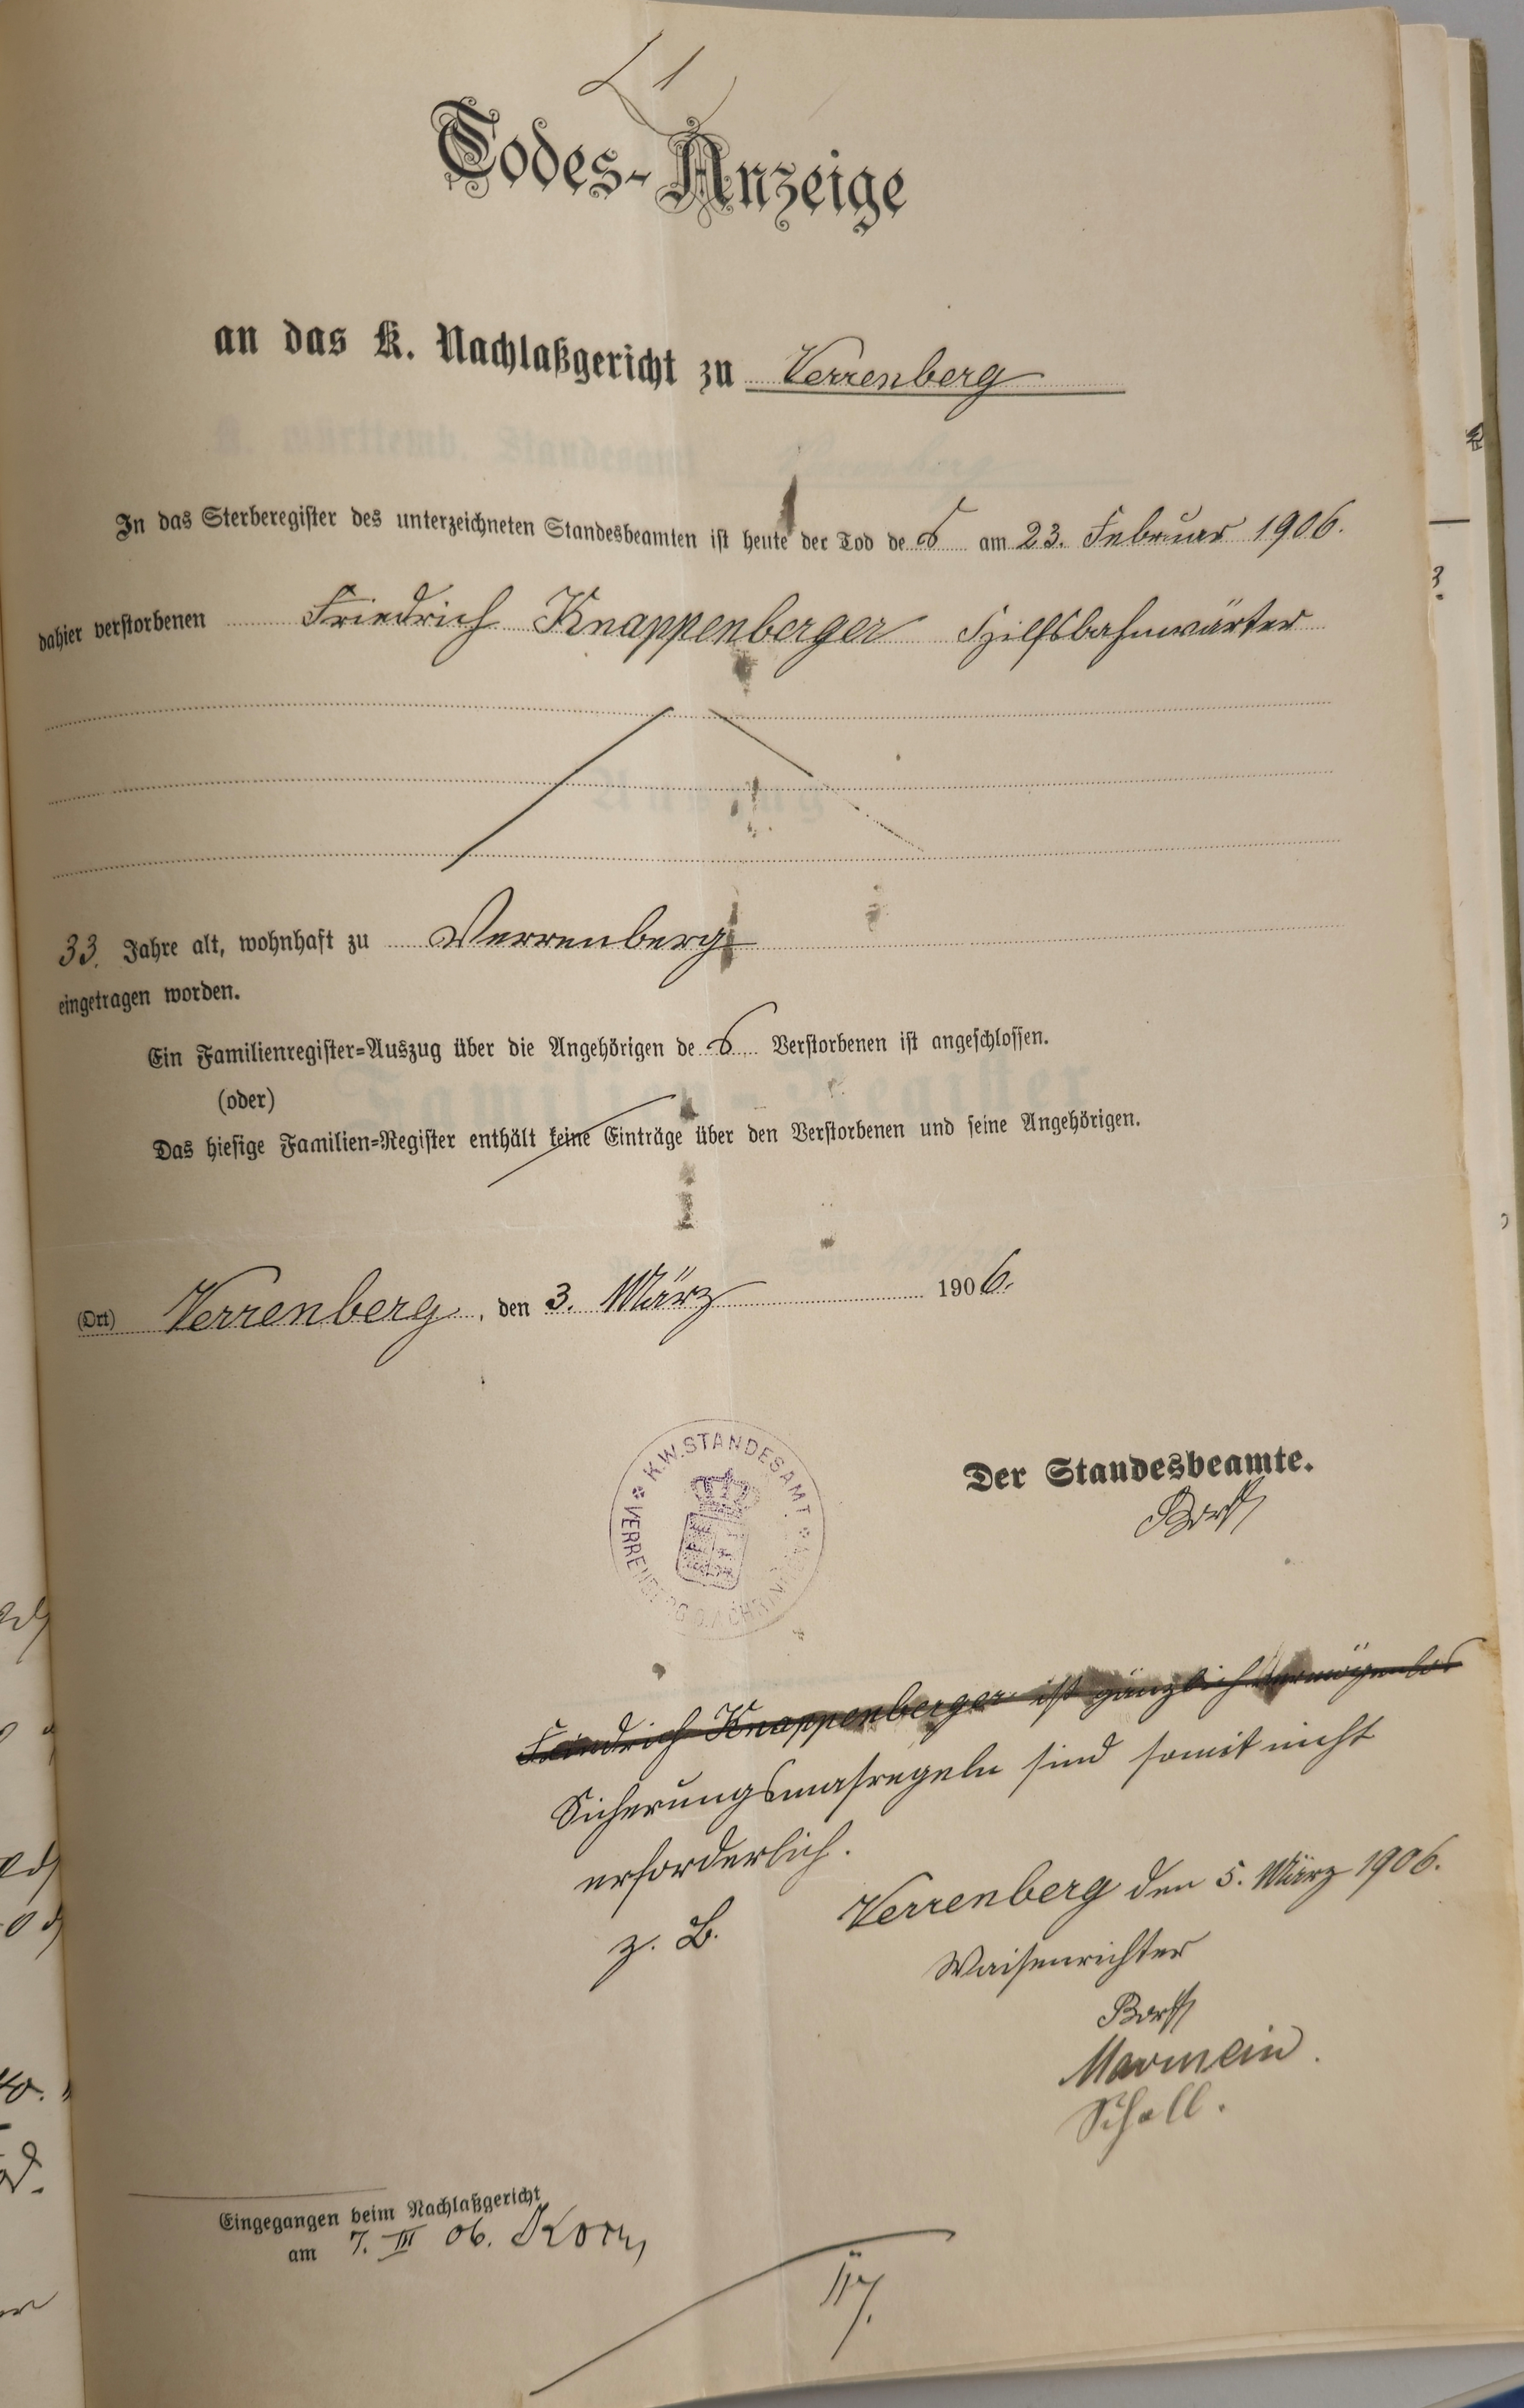 1
Todes-Anzeige
an das K. Nachlaßgericht zu Verrenberg
In das Sterberegister des unterzeichneten Standesbeamten ist heute der Tod des am 23. Februar 1906.
dahier verstorbenen Friedrich Knappenberger Hilfsbahnwärter
33. Jahre alt, wohnhaft zu Verrenberg
eingetragen worden.
Ein Familienregister-Auszug über die Angehörigen des Verstorbenen ist angeschlossen.
(oder)
Das hiesige Familien-Register enthält keine Einträge über den Verstorbenen und seine Angehörigen.
(Ort) Verrenberg, den 3. März 1906.
K.W. STANDESAMT
VERRENBERG
Der Standesbeamte.
Friedrich Knappenberger ist gänzlich vermögenlos
Sicherungsmasregeln sind somit nicht
erforderlich.
Verrenberg den 5. März 1906.
z. B.
Waisenrichter
Marmein.
Scholl.
Eingegangen beim Nachlaßgericht
am 7. III 06.